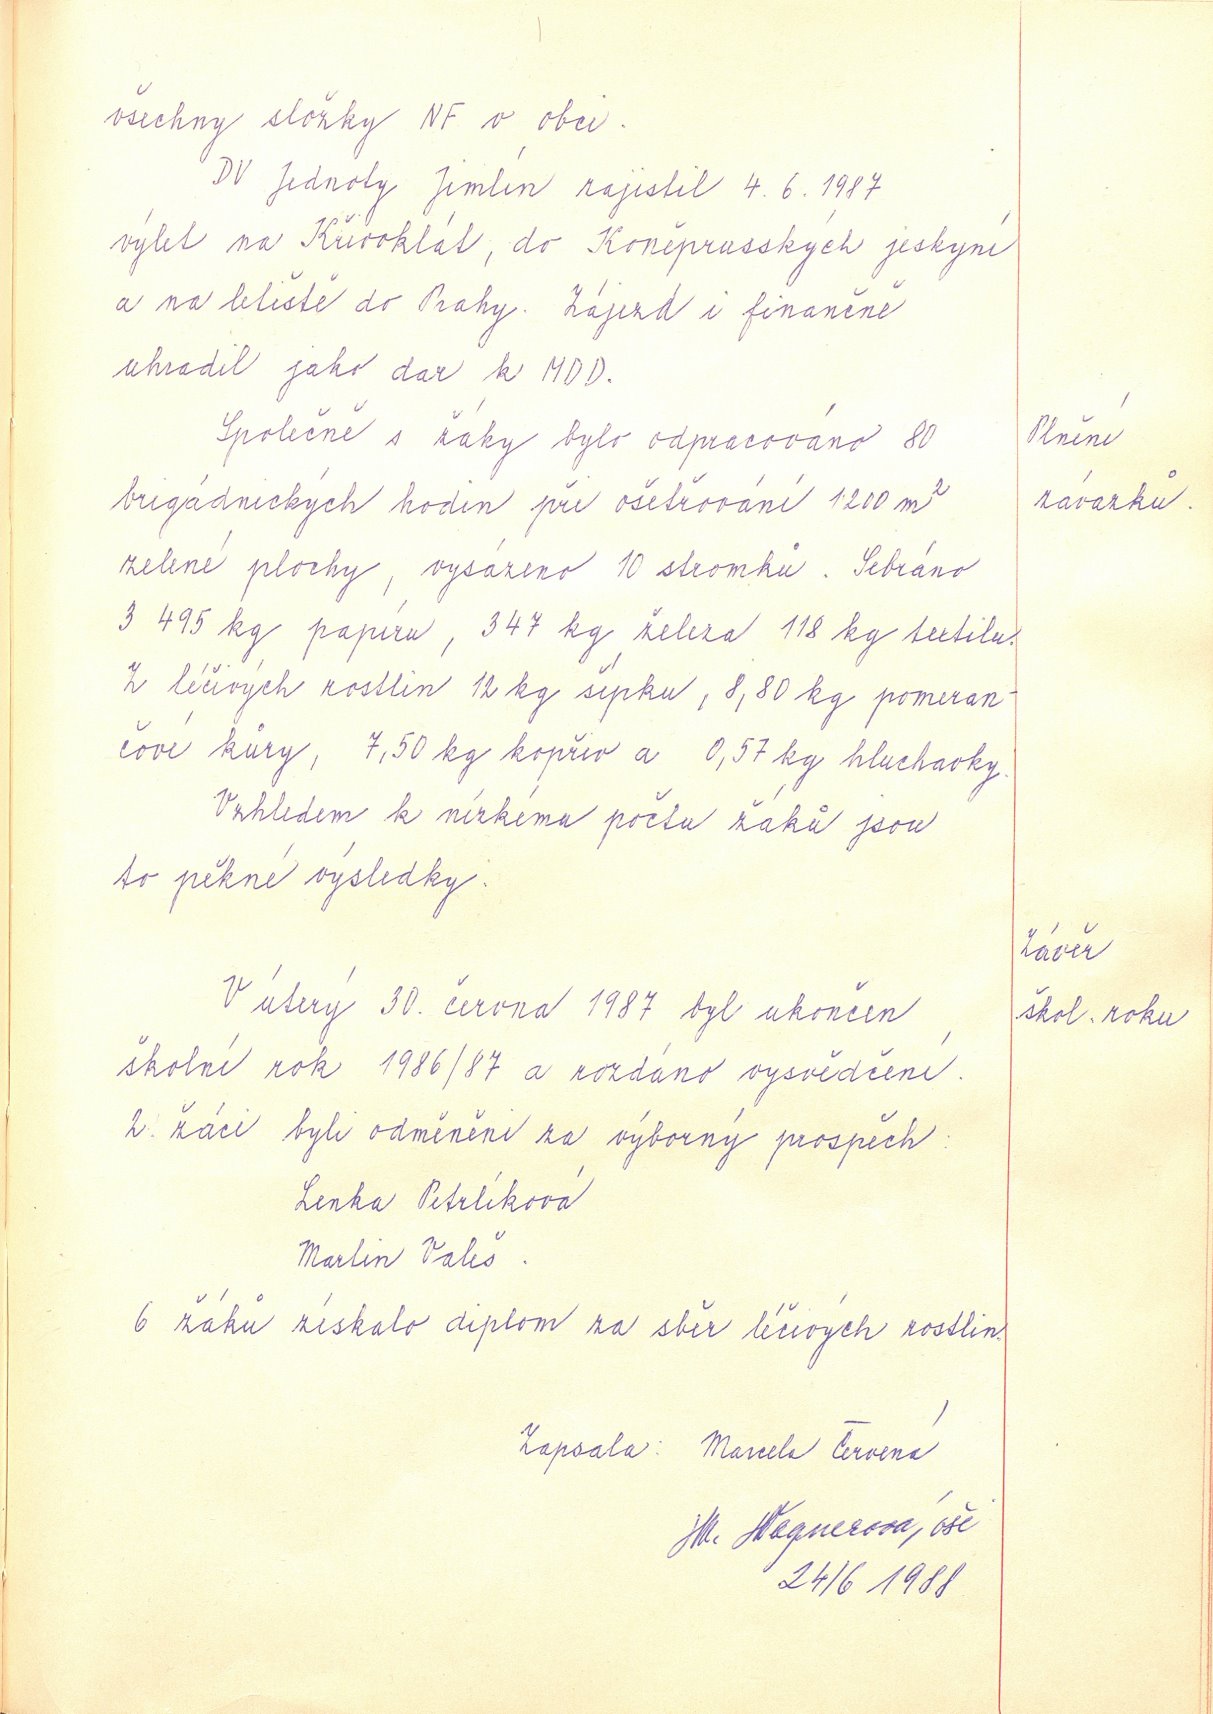 všechny složky NF v obci.
DV Jednoty Jimlín zajistil 4. 6. 1987
výlet na Křivoklát, do Koněpruských jeskyní
a na letiště do Prahy. Zájezd i finančně
uhradil jako dar k MDD.
Společně s žáky bylo odpracováno 80
Plnění
brigádnických hodin při ošetřování 1200 m²
závazků.
zelené plochy, vysázeno 10 stromků. Sebráno
3 495 kg papíru, 347 kg železa 118 kg textilu.
Z léčivých rostlin 12 kg šípku, 8,80 kg pomeran-
čové kůry, 7,50 kg kopřiv a 0,57 kg hluchavky.
Vzhledem k nízkému počtu žáků jsou
to pěkné výsledky.
Závěr
V úterý 30. června 1987 byl ukončen
škol. roku
školní rok 1986/87 a rozdáno vysvědčení.
2 žáci byli odměněni za výborný prospěch:
Lenka Petrlíková
Martin Valeš.
6 žáků získalo diplom za sběr léčivých rostlin.
Zapsala: Marcela Červená
M. Wagnerová, oši
24/6 1988